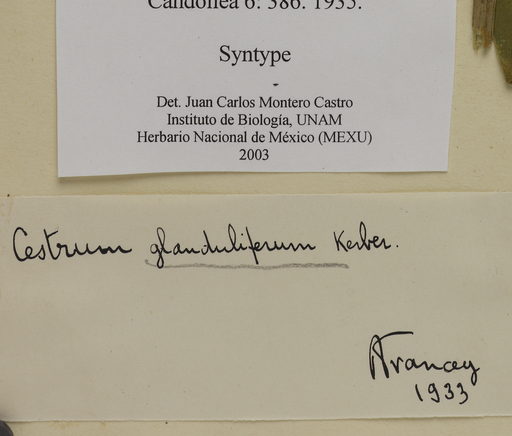 Candollea 6: 386. 1935.
Syntype
Det. Juan Carlos Montero Castro
Instituto de Biología, UNAM
Herbario Nacional de México (MEXU)
2003
Cestrum glanduliferum Kerber.
Francey
1933